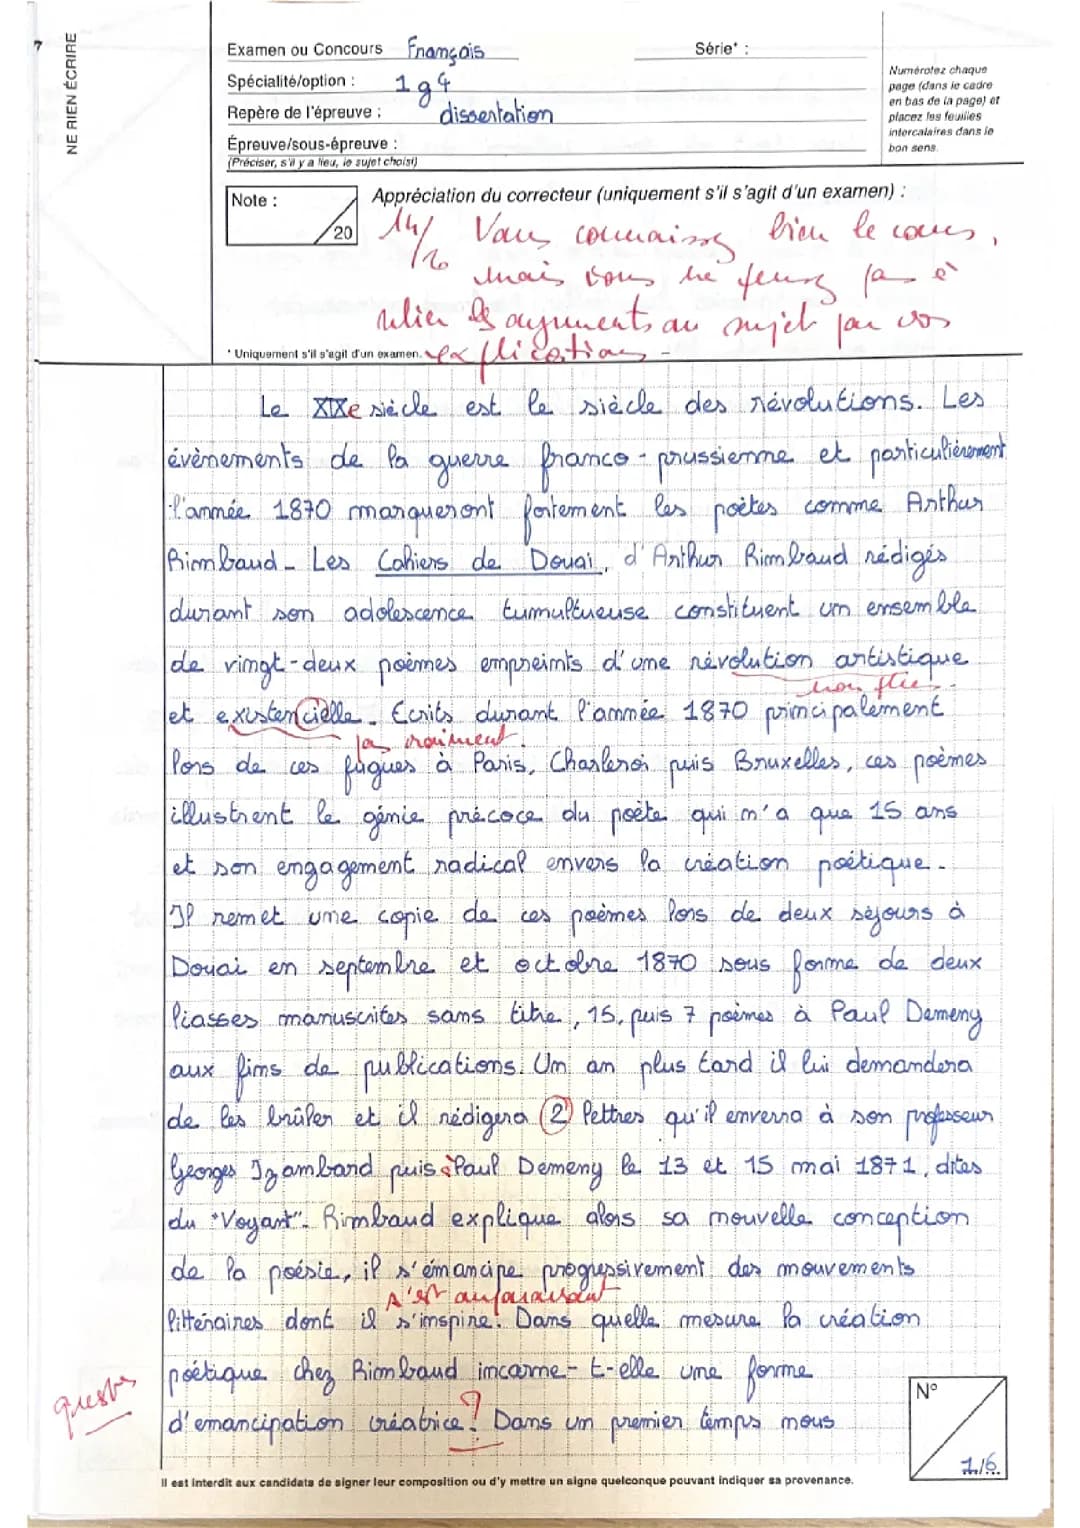 7
NE RIEN ÉCRIRE
Examen ou Concours Français Série* :
Spécialité/option : 1g4
Repère de l'épreuve : dissertation
Épreuve/sous-épreuve :
(Préciser, s'il y a lieu, le sujet choisi)
Numérotez chaque
page (dans le cadre
en bas de la page) et
placez les feuilles
intercalaires dans le
bon sens.
Note :
20
Appréciation du correcteur (uniquement s'il s'agit d'un examen) :
14/20 Vous connaissez bien le cours,
mais vous ne pensez pas à
relier les arguments au sujet par vos
explications.
* Uniquement s'il s'agit d'un examen.
Le XIXe siècle est le siècle des révolutions. Les
évènements de la guerre franco-prussienne et particulièrement
l'année 1870 marqueront fortement les poètes comme Arthur
Rimbaud. Les Cahiers de Douai, d'Arthur Rimbaud rédigés
durant son adolescence tumultueuse constituent un ensemble
de vingt-deux poèmes empreints d'une révolution artistique
non plus.
et existencielle. Ecrits durant l'année 1870 principalement
pas vraiment.
lors de ces fugues à Paris, Charleroi puis Bruxelles, ces poèmes
illustrent le génie précoce du poète qui n'a que 15 ans
et son engagement radical envers la création poétique.
Il remet une copie de ces poèmes lors de deux séjours à
Douai en septembre et octobre 1870 sous forme de deux
liasses manuscrites sans titre, 15, puis 7 poèmes à Paul Demeny
aux fins de publications. Un an plus tard il lui demandera
de les brûler et il rédigera 2 lettres qu'il enverra à son professeur
Georges Izambard puis à Paul Demeny le 13 et 15 mai 1871, dites
du "Voyant". Rimbaud explique alors sa nouvelle conception
de la poésie, il s'émancipe progressivement des mouvements
A's auparavant
littéraires dont il s'inspire. Dans quelle mesure la création
poétique chez Rimbaud incarne-t-elle une forme
d'emancipation créatrice ? Dans un premier temps nous
N°
1/6
Il est interdit aux candidats de signer leur composition ou d'y mettre un signe quelconque pouvant indiquer sa provenance.